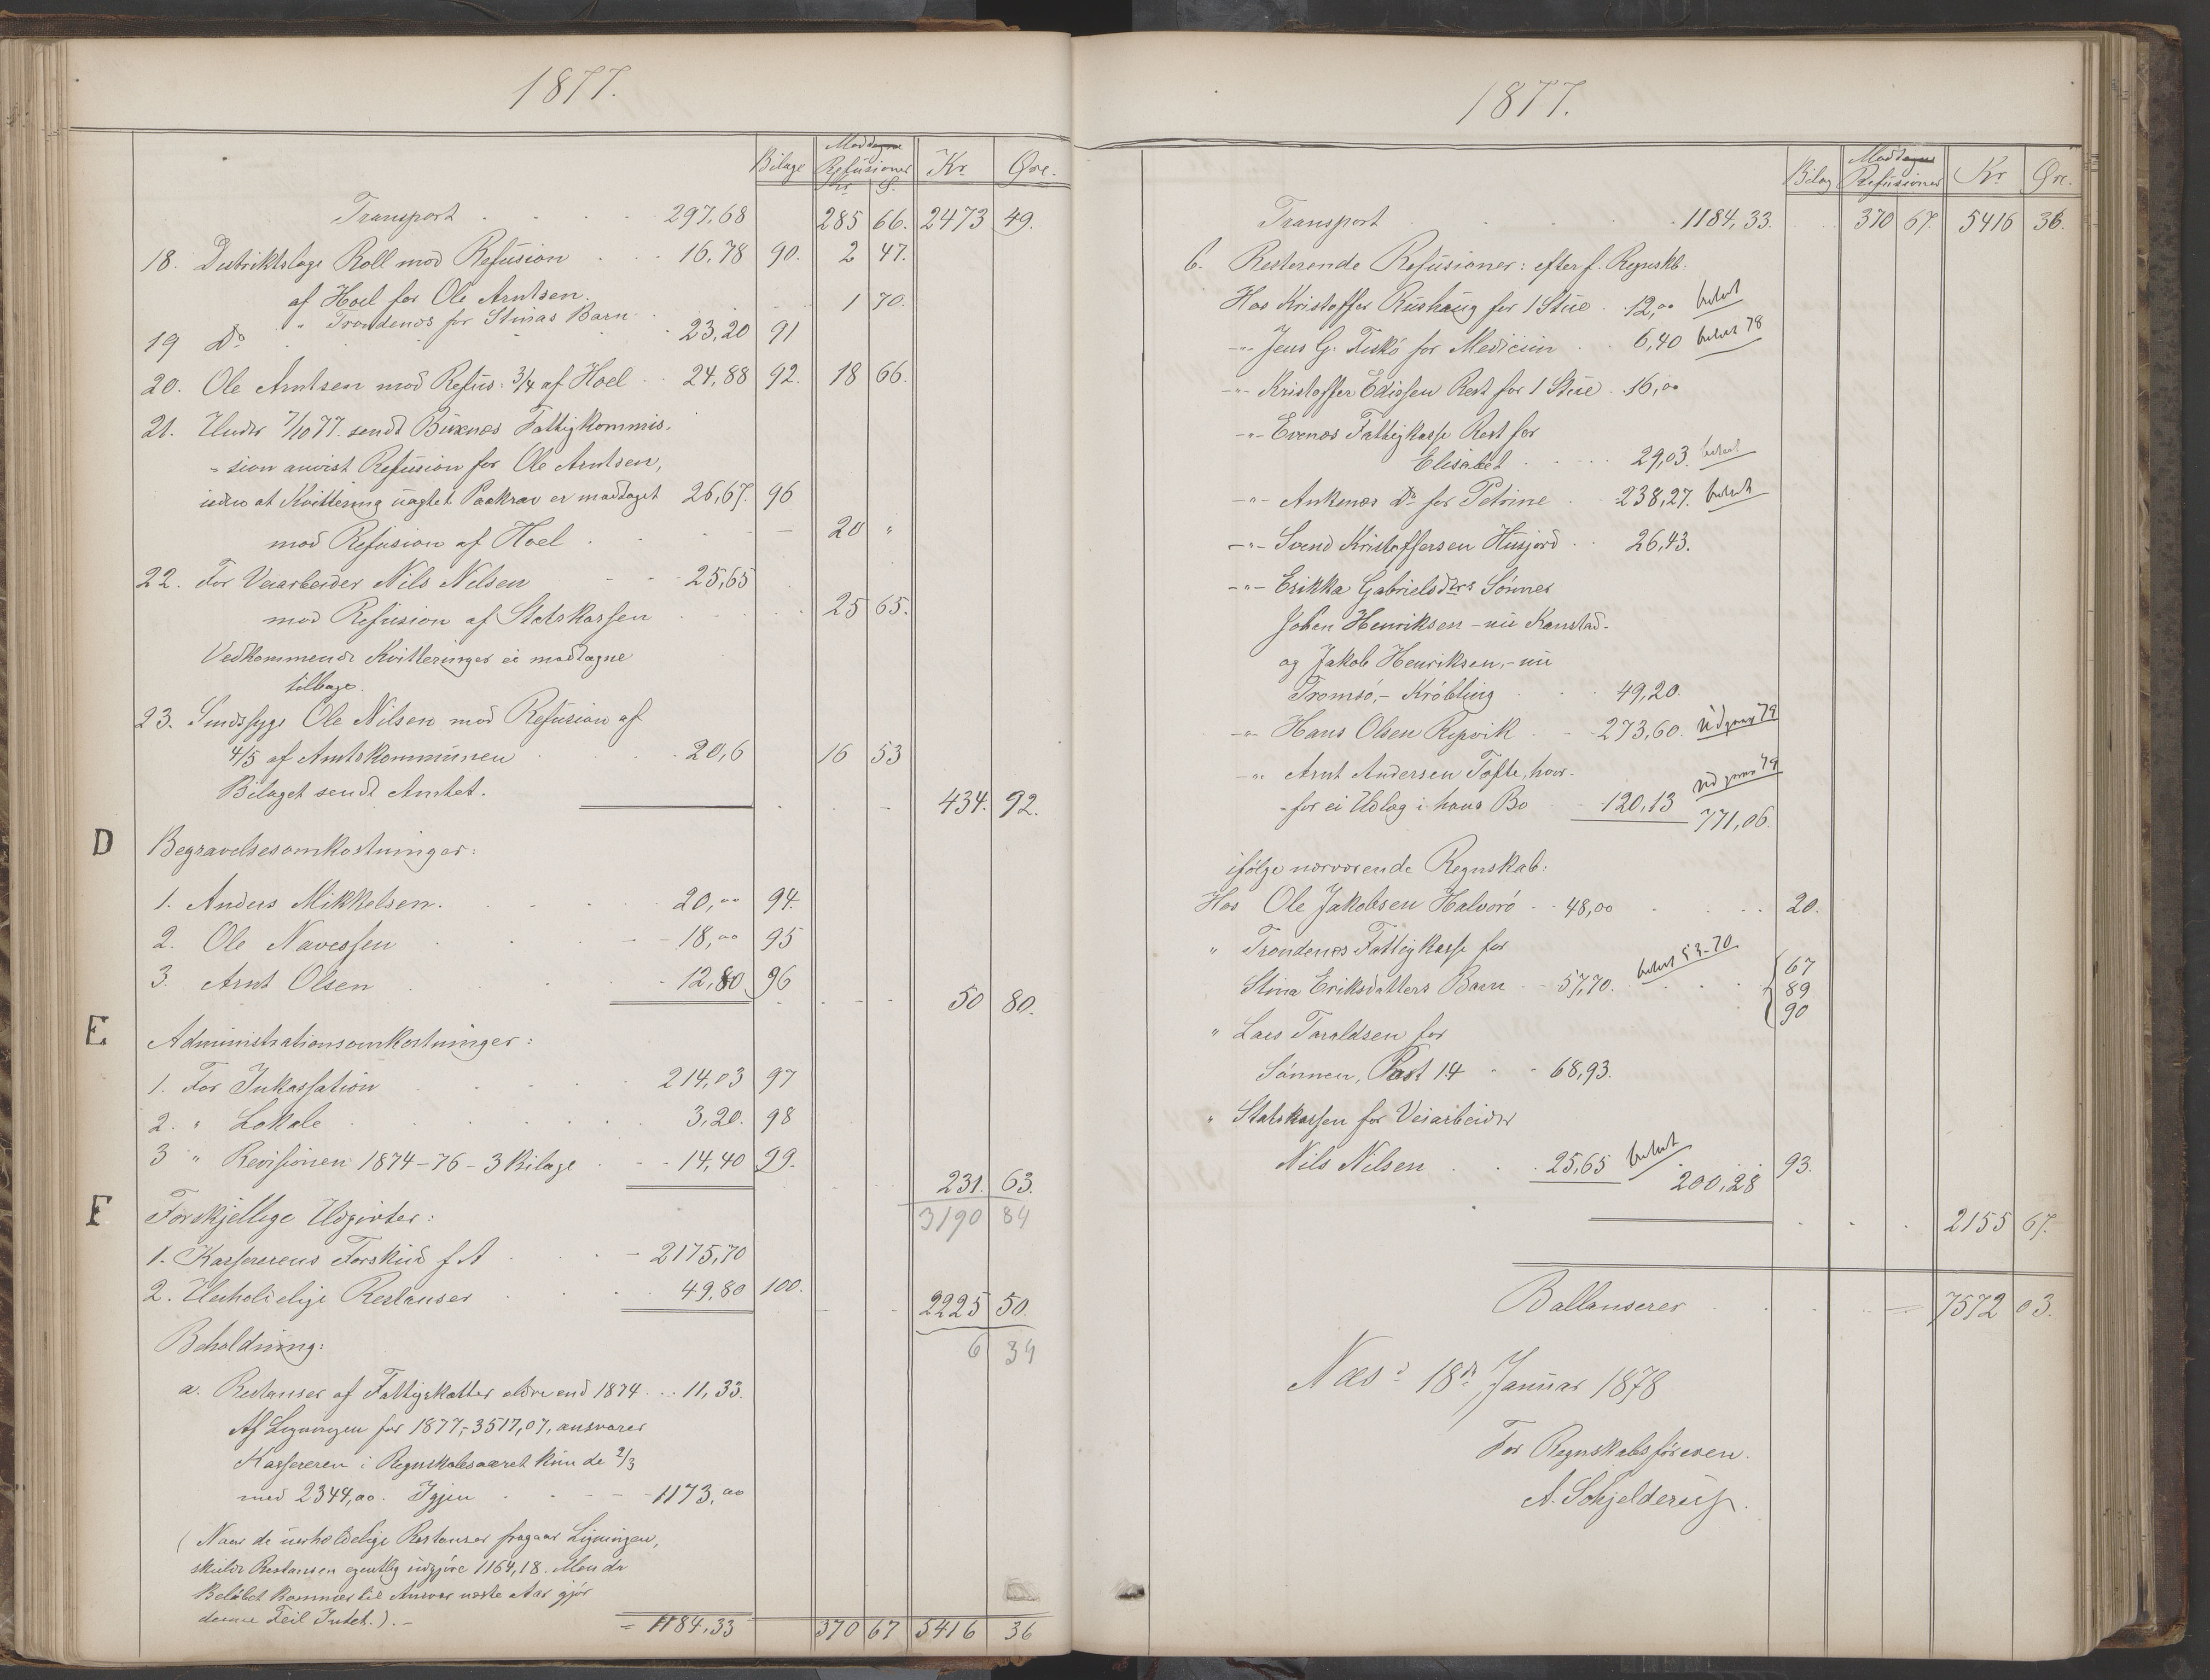 1877.
Bilage Modtagne Refusioner Kr Øre.
Kr S.
Transport 297,68 285 66. 2473 49.
18. Distriktslæge Roll mod Refusion 16,78 90. 2 47.
af Hoel for Ole Arntsen. 1 70.
19 Do " Trondenæs for Stinas Barn 23,20 91
20. Ole Arntsen mod Refus: 3/4 af Hoel 24,88 92. 18 66.
21. Under 7/10 77. sendt Buxnæs Fattigkommis-
sion anvist Refusion for Ole Arntsen,
uden at Kvittering uagtet Paakrav er modtaget 26,67. 96
mod Refusion af Hoel 20 "
22. For Veiarbeider Nils Nilsen 25,65
mod Refusion af Statskassen 25 65.
Vedkommende Kvitteringer ei modtagne
tilbage.
23. Sindssyge Ole Nilsen mod Refusion af
4/5 af Amtskommunen 20,6 16 53
Bilaget sendt Amtet.
434. 92.
D Begravelsesomkostninger:
1. Anders Mikkelsen. 20,00 94.
2. Ole Navessen 18,00 95
3. Arnt Olsen 12,80 96
50 80.
E Administrationsomkostninger:
1. For Inkassation 214,03 97
2. " Lokale 3,20. 98
3 " Revisionen 1874-76 - 3 Bilage 14,40 99.
231. 63.
F Forskjellige Udgivter: 3190 84
1. Kassererens Forskud f. A 2175,70
2. Uerholdelige Restanser 49,80 100.
2225 50.
Beholdning: 6 34
a. Restanser af Fattigskatter ældre end 1874 11,33.
Af Ligningen for 1877,- 3517,07, ansvarer
Kassereren i Regnskabsaaret kun de 2/3
med 2344,00. Igjen 1173,00
(Naar de uerholdelige Restanser fragaar Ligningen,
skulde Restansen egentlig udgjöre 1164,18. Men da
Belöbet kommer til Ansvar næste Aar gjör
denne Feil Intet.).-
= 1184,33 370 67 5416 36
1877.
Bilag Modtagne Refusioner Kr Øre.
Transport 1184,33. 370 67. 5416 36.
b. Resterende Refusioner: efter f. Regnskb:
Hos Kristoffer Rushaug for 1 Stue 12,00 betalt
-"- Jens G. Fiskö for Medicin 6,40 betalt 78
-"- Kristoffer Edissen Rest for 1 Stue 16,00
-"- Evenæs Fattigkasse Rest for
Elisabet 29,03. betalt
-"- Ankenæs Do for Petrine 238,27. betalt
-"- Svend Kristoffersen Husjord 26,43.
-"- Erikka Gabrielsdtrs Sönner
Johan Henriksen - nu Kanstad-
og Jakob Henriksen, - nu
Tromsö, - Kröbling 49,20.
-"- Hans Olsen Repvik 273,60. udgaar 79
-"- Arnt Andersen Tofte, hvor-
for ei Udlæg i hans Bo 120,13 udgaar 79
771,06.
ifölge nærværende Regnskab:
Hos Ole Jakobsen Halvorö 48,00 20.
" Trondenæs Fattigkasse for
Stina Eriksdatters Barn 57,70. betalt 53-70 67
89
90
" Lars Taraldsen for
Sönnen, Post 14 68,93.
" Statskassen for Veiarbeider
Nils Nilsen 25,65 betalt 93.
200,28
2155 67.
Ballanserer 7572 03.
Næs d 18de Januar 1878
For Regnskabsföreren.
A. Schjelderup.